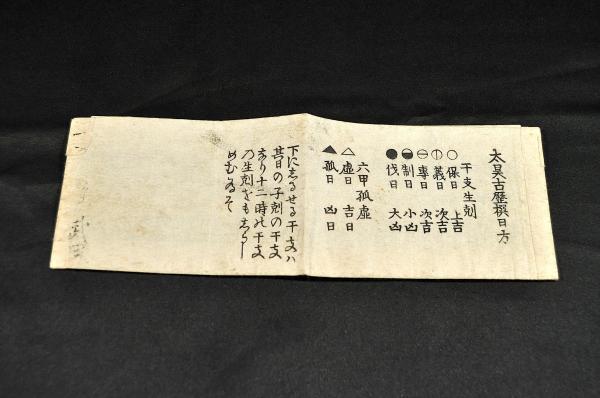 太昊古曆撰日方
干支生剋
○保日 上吉
義日 次吉
⊖専日 次吉
制日 小凶
●伐日 大凶
六甲孤虛
△虛日 吉日
▲孤日 凶日
下にしるせる干支ハ
其日の子刻の干支
なり十二時の干支
乃生剋をもしるし